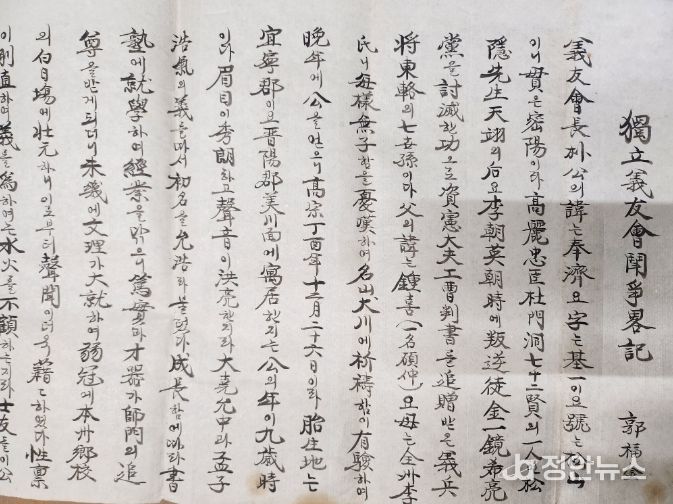 獨立義友會鬪爭畧記
郭福
義友會長 孫公의 諱는 奉濟요 字는 基一이요 號는
이니 貫은 密陽이라 高麗忠臣 杜門洞 七十二賢의 一人 松
隱先生 天翊의 后요 李朝英朝時에 叛逆徒 金一鏡 希亮
黨을 討滅한 功으로 資憲大夫 工曹判書를 追贈받은 義兵
將 東輅의 七세孫이다 父의 諱는 鍾喜(一名 碩仲)요 母는 全州李
氏니 每樣 無子함을 憂嘆하여 名山大川에 祈禱함이 有驗하여
晩年에 公을 얻으니 高宗 丁酉年 十二月 二十六日이라 胎生地는
宜寧郡이요 晋陽郡 美川面에 寓居한지는 公의 年이 九歲時
이라 眉目이 秀朗하고 聲音이 洪亮한지라 大堯允中과 孟子
浩氣의 義를 따서 初名을 允浩라 불렀다 成長함에 따라 書
塾에 就學하여 經業을 닦으니 篤實과 才器가 師門의 追
尊을 받게 되더니 未幾에 文理가 大就하여 弱冠에 本州鄕校
의 白日場에 壯元하니 이로부터 聲聞이 더욱 藉藉하였다 性稟
이 剛直하여 義를 爲하여는 水火를 不顧하는지라 士友들이 公
정안뉴스